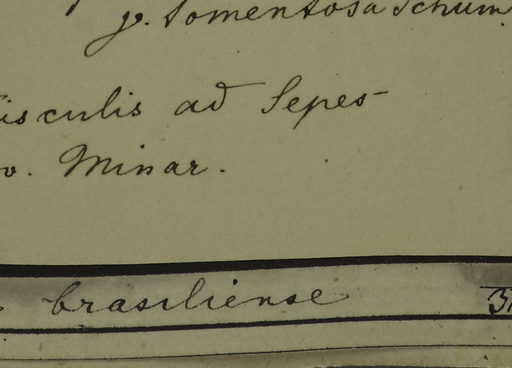 γ. tomentosa Schum.
isculis ad Sepes
v. Minar.
brasiliense